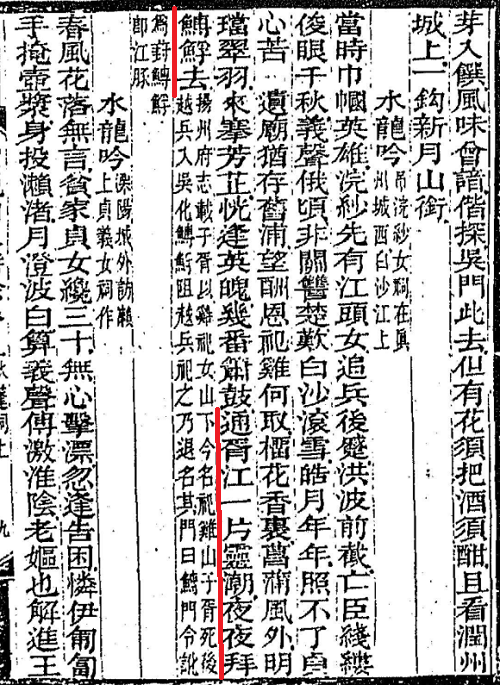 芽入饌風味曾諳偕探吳門此去但有花須把酒須酣且看潤州
城上一鉤新月山銜
水龍吟 吊浣紗女祠在眞
州城西白沙江上
當時巾幗英雄浣紗先有江頭女追兵後蹙洪波前截亡臣綫縷
俊眼千秋義聲俄頃非關讐楚歎白沙滾雪皓月年年照不了貞
心苦 遺廟猶存舊浦望酬恩祀雞何取榴花香裏菖蒲風外明
璫翠羽來搴芳芷恍逢英魄幾番簫鼓通胥江一片靈潮夜夜拜
鱄䱐去 揚州府志載子胥以雞祀女山下今名祀雞山子胥死後
越兵入吳化鱄䱐阻越兵祀之乃退名其門曰鱄門今訛
爲葑鱄䱐
卽江豚
水龍吟 溧陽城外訪瀨
上貞義女祠作
春風花落無言貧家貞女纔三十無心擊漂忽逢告困憐伊匍匐
手掩壺漿身投瀨渚月澄波白算義聲傳激淮陰老嫗也解進王